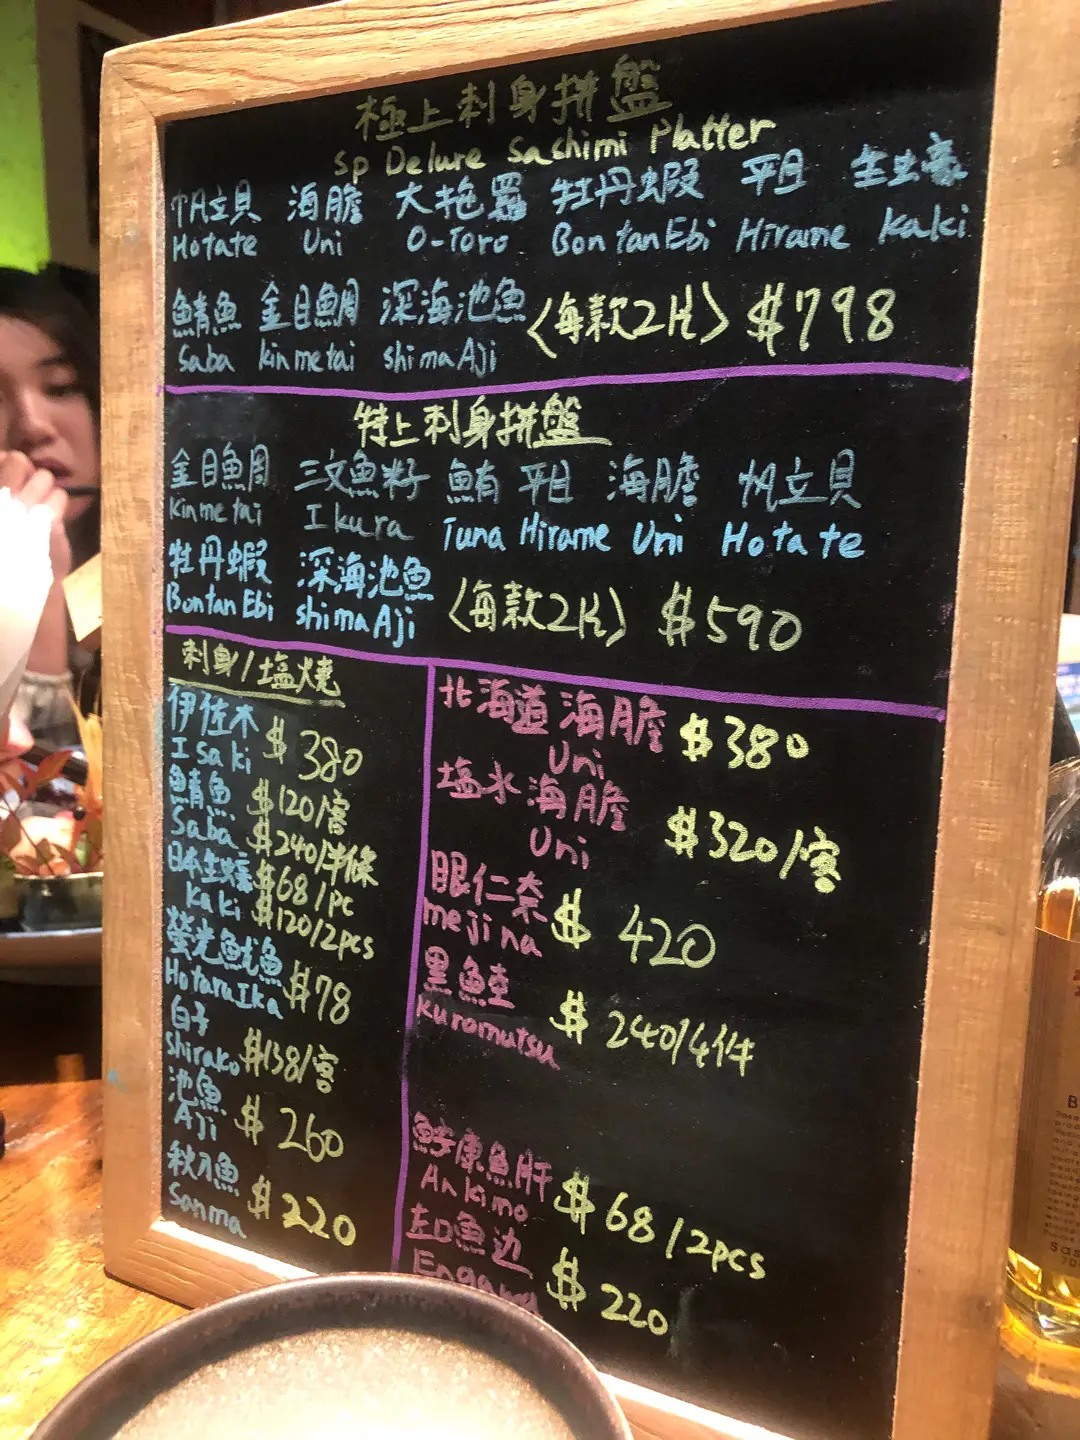 極上刺身拼盤
Sp Deluxe Sachimi Platter
帆立貝 海膽 大拖羅 牡丹蝦 平目 生蠔
Hotate Uni O-Toro BontanEbi Hirame Kaki
鯖魚 金目鯛 深海池魚 〈每款2片〉 $798
Saba kinmetai shimaAji
特上刺身拼盤
金目鯛 三文魚籽 鮪 平目 海膽 帆立貝
kinmetai Ikura Tuna Hirame Uni Hotate
牡丹蝦 深海池魚 〈每款2片〉 $590
BontanEbi shimaAji
刺身/塩燒
伊佐木 $380
Isaki
鯖魚 $120/客
Saba $240/半條
日本生蠔 $68/pc
Kaki $120/2pcs
螢光魷魚 $78
HotaruIka
白子 $138/客
Shirako
池魚 $260
Aji
秋刀魚 $220
Sanma
北海道海膽 $380
Uni
塩水海膽 $320/客
Uni
眼仁奈 $420
mejina
黑鯥 $240/4件
kuromutsu
鮟康魚肝 $68/2pcs
Ankimo
左口魚边 $220
Engawa